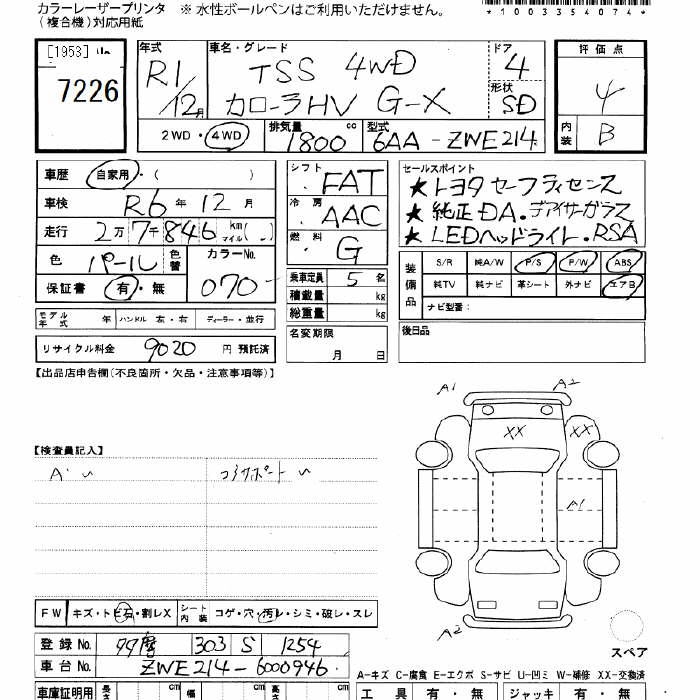 カラーレーザープリンタ ※ 水性ボールペンはご利用いただけません。
(複合機)対応用紙
*1003354074*
[1953]
7226
年式 R1/12月
車名・グレード TSS 4WD
カローラHV G-X
ドア 4
形状 SD
評価点 4
内装 B
2WD・4WD 排気量 1800 cc 型式 6AA-ZWE214
車歴 自家用・( )
車検 R6年 12月
走行 2万7千846 km マイル( )
色 パール 色替 カラーNo. 070
保証書 有・無
シフト FAT
冷房 AAC
燃料 G
乗車定員 5 名
積載量 kg
総重量 kg
名変期限 月 日
セールスポイント
★トヨタセーフティセンス
★純正DA.デアイサーガラス
★LEDヘッドライト.RSA
装備品 S/R 純A/W P/S P/W ABS
純TV 純ナビ 革シート 外ナビ エアB
ナビ型番:
後日品
モデル年式 年 ハンドル 左・右 ディーラー・並行
リサイクル料金 9020 円 預託済
【出品店申告欄(不良箇所・欠品・注意事項等)】
A1 A2
XX XX
A1
A2
スペア
【検査員記入】
A・〜 コアサポート 〜
FW キズ・トビ石・割レX シート内装 コゲ・穴・汚レ・シミ・破レ・スレ
登録No. 303 S 1254
車台No. ZWE214-6000946
A-キズ C-腐食 E-エクボ S-サビ U-凹ミ W-補修 XX-交換済
車庫証明用 長さ cm 幅 cm 高さ cm
工具 有・無 ジャッキ 有・無